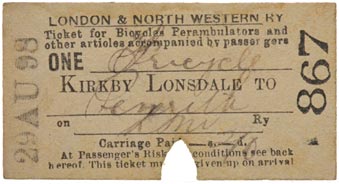 LONDON & NORTH WESTERN RY
Ticket for Bicycles Perambulators and
other articles accompanied by passengers
ONE Bicycle
KIRKBY LONSDALE TO
Penrith
on Ry
Carriage Paid s. d.
At Passenger's Risk conditions see back
hereof. This ticket must given up on arrival
29 AU 98
867